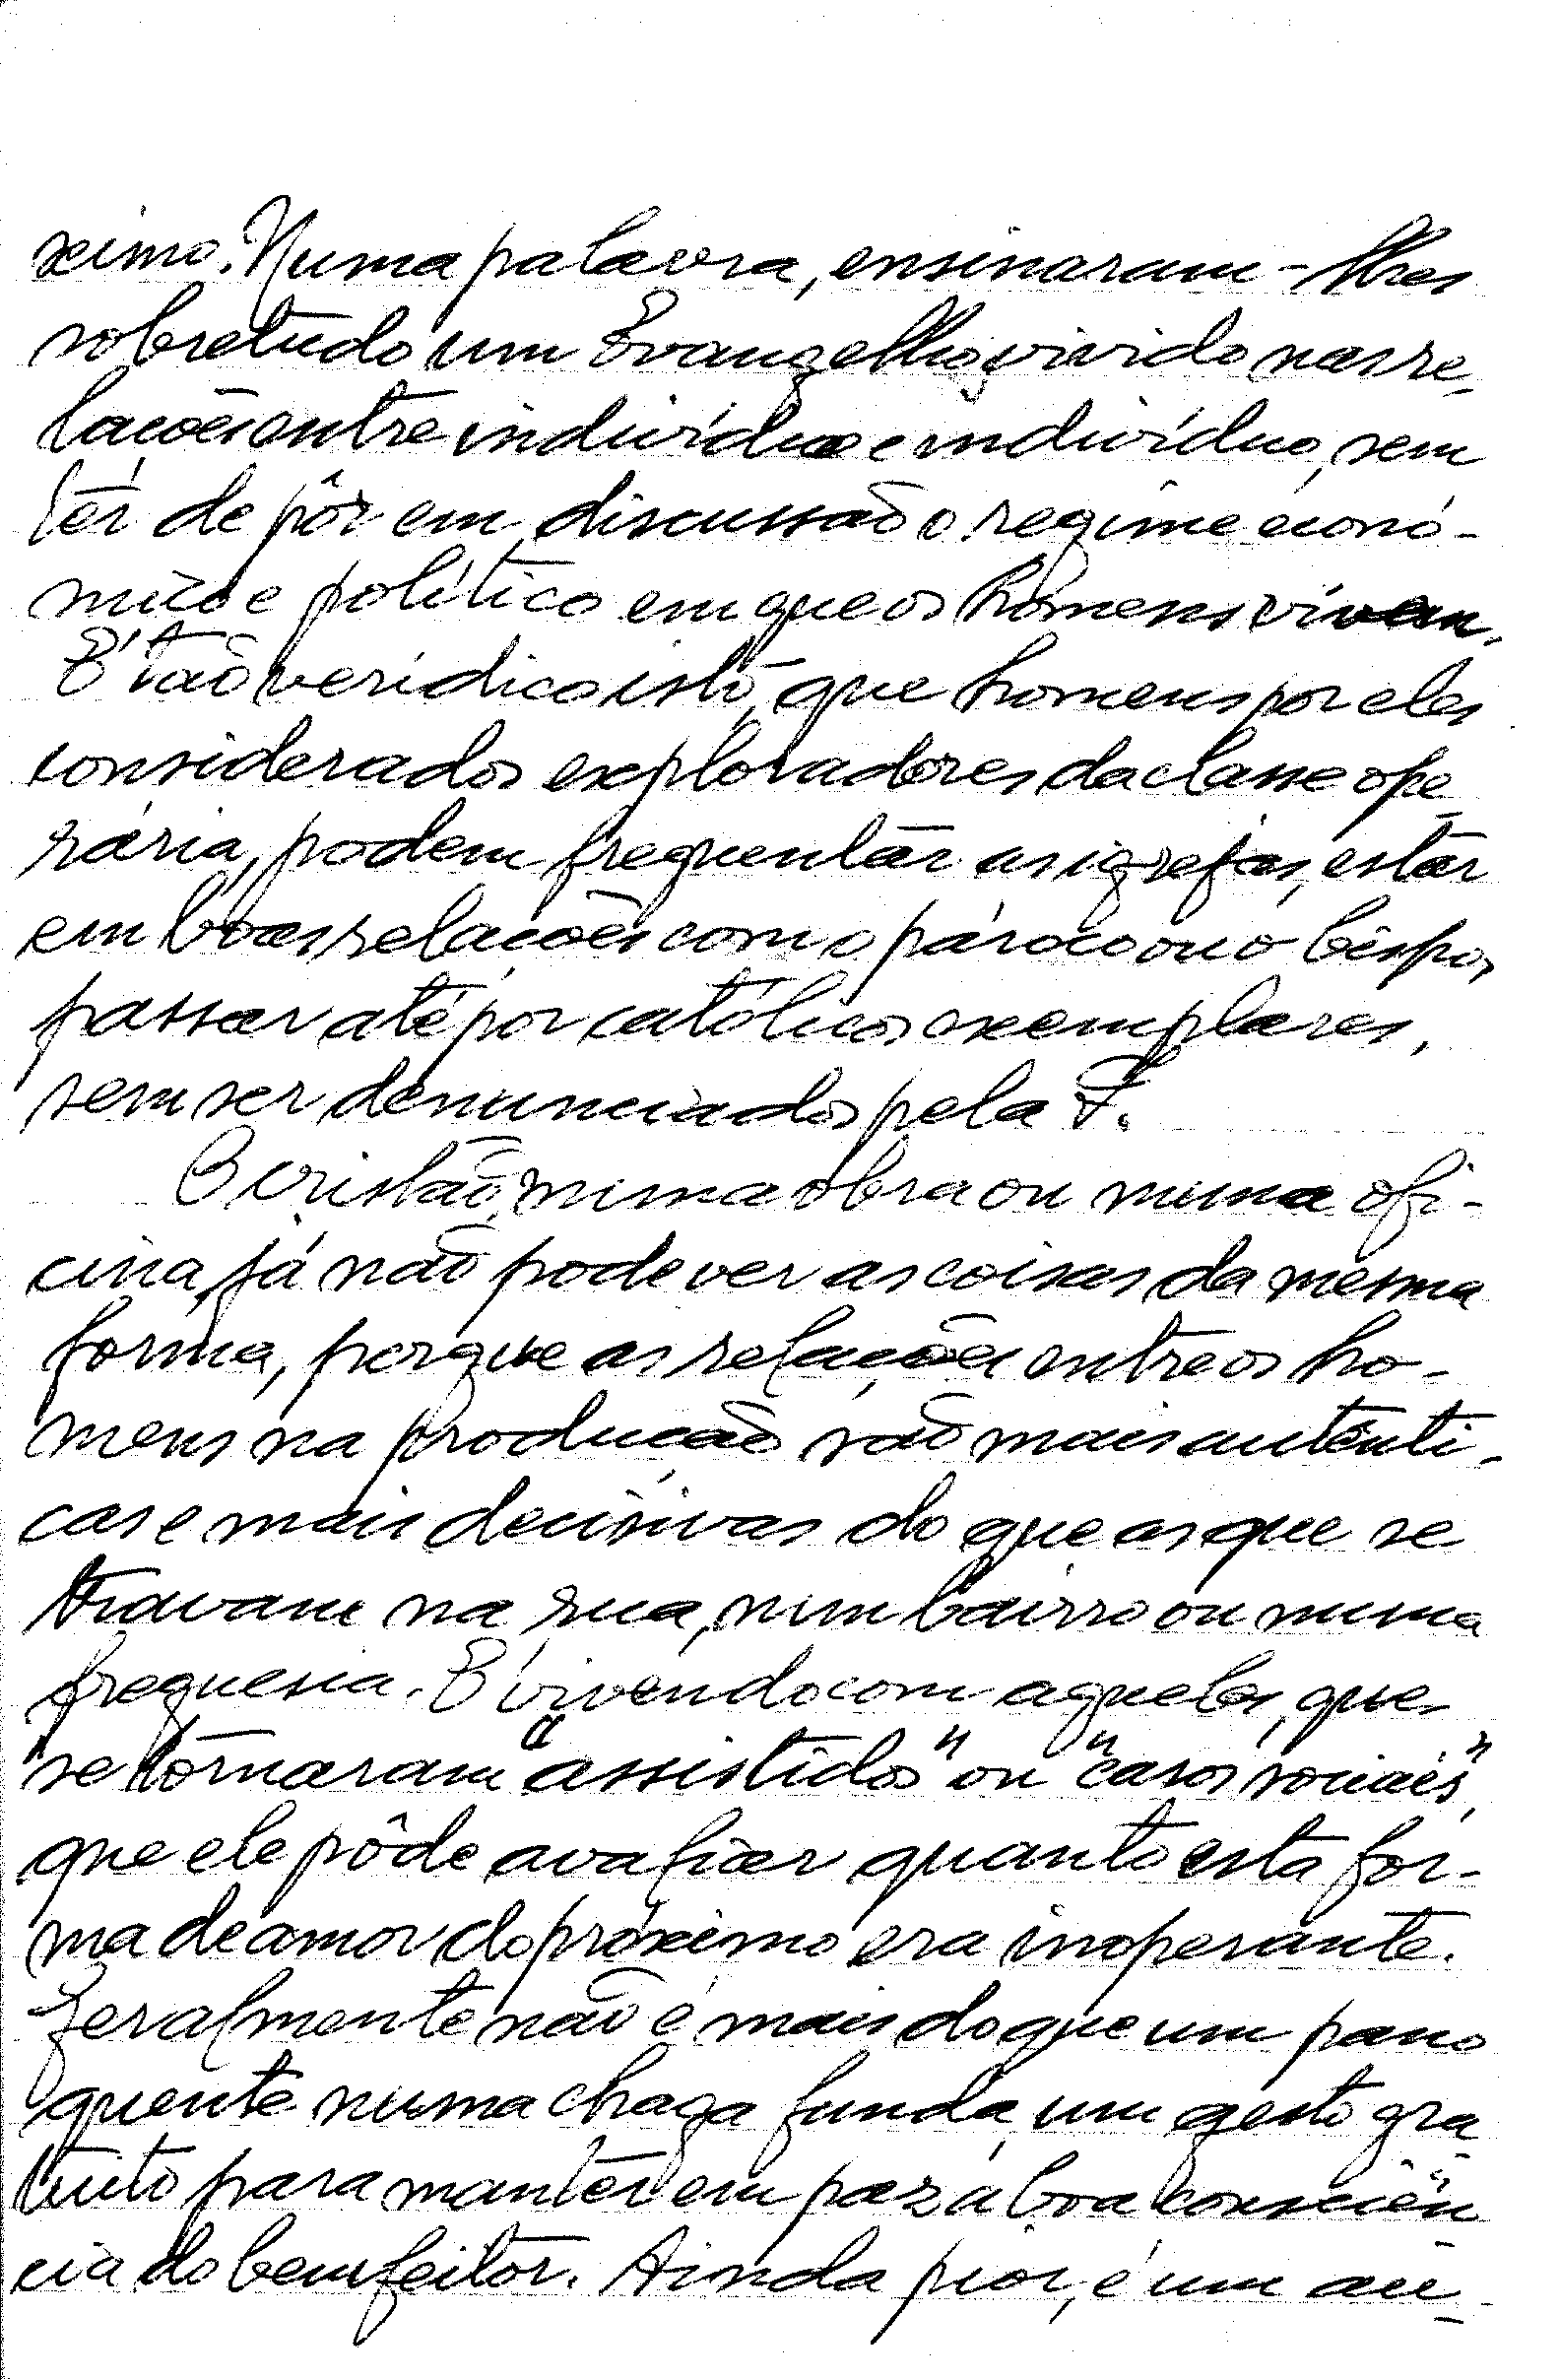 ximo. Numa palavra, ensinaram-lhes
sobretudo um Evangelho vivido nas re-
lações entre indivíduo e indivíduo, sem
ter de pôr em discussão o regime econó-
mico e político em que os homens vivem.
É tão verídico isto, que homens por eles
considerados exploradores da classe ope-
rária, podem frequentar as igrejas, estar
em boas relações com o pároco ou o bispo,
passar até por católicos exemplares,
sem ser denunciados pela F.
O cristão, numa obra ou numa ofi-
cina, já não pode ver as coisas da mesma
forma, porque as relações entre os ho-
mens na produção são mais autênti-
cas e mais decisivas do que as que se
travam na rua, num bairro ou numa
freguesia. É vivendo com aqueles, que
se tornaram "assistidos" ou "casos sociais",
que ele pôde avaliar quanto esta for-
ma de amor do próximo era inoperante.
Geralmente não é mais do que um pano
quente numa chaga funda, um gesto gra-
tuito para manter em paz a boa consciên-
cia do bemfeitor. Ainda pior, é um au-